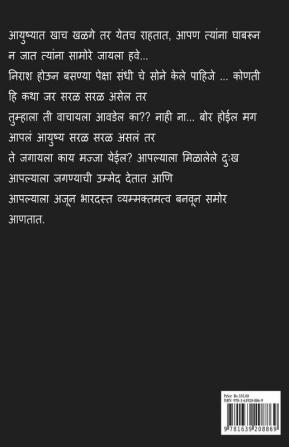 आयुष्यात खाच खळगे तर येतच राहतात, आपण त्यांना घाबरून
न जात त्यांना सामोरे जायला हवे...
निराश होऊन बसण्या पेक्षा संधी चे सोने केले पाहिजे ... कोणती
हि कथा जर सरळ सरळ असेल तर
तुम्हाला ती वाचायला आवडेल का?? नाही ना... बोर होईल मग
आपलं आयुष्य सरळ सरळ असलं तर
ते जगायला काय मज्जा येईल? आपल्याला मिळालेले दुःख
आपल्याला जगण्याची उम्मेद देतात आणि
आपल्याला अजून भारदस्त व्यम्मक्तमत्व बनवून समोर
आणतात.
9781639208869